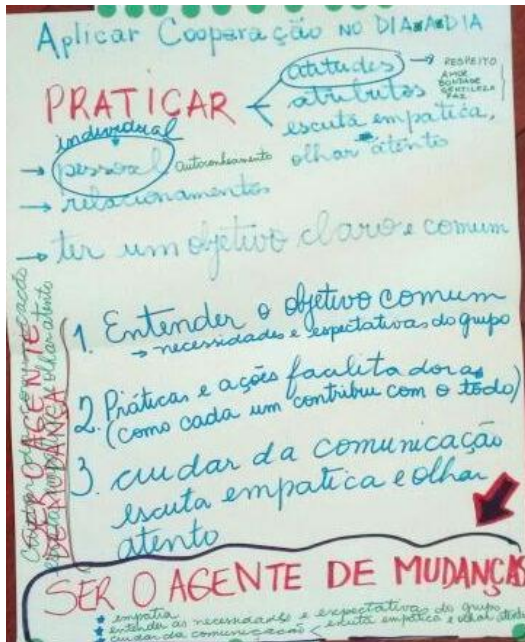 Aplicar Cooperação NO DIA A DIA
PRATICAR
atitudes → RESPEITO
AMOR
BONDADE
GENTILEZA
PAZ
atributos
escuta empatica,
olhar atento
individual
→ pessoal autoconhecimento
→ relacionamentos
→ ter um objetivo claro e comum
1. Entender o objetivo comum
→ necessidades e expectativas do grupo
2. Práticas e ações facilitadoras
(como cada um contribui com o todo)
3. cuidar da comunicação
escuta empatica e olhar
atento
SER O AGENTE
DE MUDANÇA
Cuidar da comunicação
escuta empatica e olhar atento
SER O AGENTE DE MUDANÇAS
★ empatia
★ entender as necessidades e expectativas do grupo
★ cuidar da comunicação < escuta empática e olhar atento